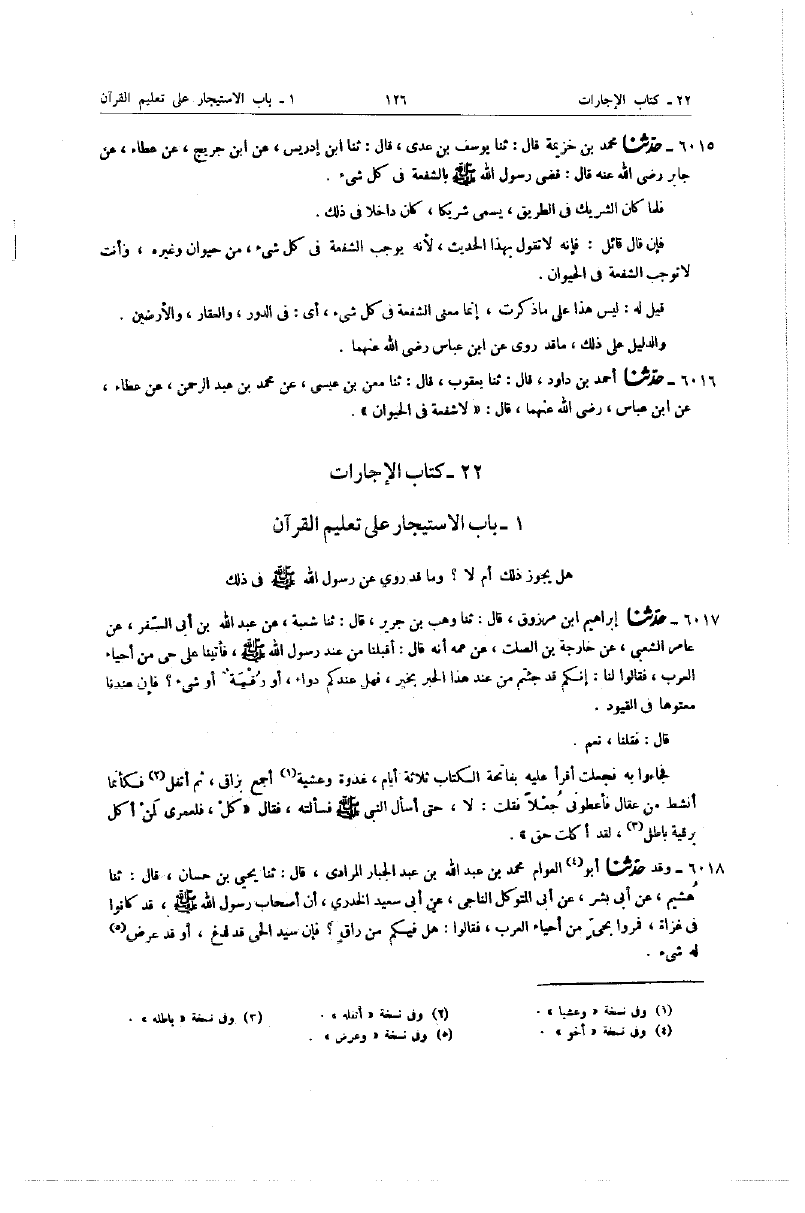 ٢٢ ـ كتاب الإجارات ١٢٦ ١ ـ باب الاستيجار على تعليم القرآن
٦٠١٥ ـ حدثنا محمد بن خزيمة قال : ثنا يوسف بن عدى ، قال : ثنا ابن إدريس ، عن ابن جريج ، عن عطاء ، عن
جابر رضى الله عنه قال : قضى رسول الله ﷺ بالشفعة فى كل شىء .
فلما كان الشريك فى الطريق ، يسمى شريكا ، كان داخلا فى ذلك .
فإن قال قائل : فإنه لاتقول بهذا الحديث ، لأنه يوجب الشفعة فى كل شىء ، من حيوان وغيره ، وأنت
لاتوجب الشفعة فى الحيوان .
قيل له : ليس هذا على ماذكرت ، إنما معنى الشفعة فى كل شىء ، أى : فى الدور ، والعقار ، والأرضين .
والدليل على ذلك ، ماقد روى عن ابن عباس رضى الله عنهما .
٦٠١٦ ـ حدثنا أحمد بن داود ، قال : ثنا يعقوب ، قال : ثنا معن بن عيسى ، عن محمد بن عبد الرحمن ، عن عطاء ،
عن ابن عباس ، رضى الله عنهما ، قال : « لاشفعة فى الحيوان » .
٢٢ ـ كتاب الإجارات
١ ـ باب الاستيجار على تعليم القرآن
هل يجوز ذلك أم لا ؟ وما قد روي عن رسول الله ﷺ فى ذلك
٦٠١٧ ـ حدثنا إبراهيم ابن مرزوق ، قال : ثنا وهب بن جرير ، قال : ثنا شعبة ، عن عبد الله بن أبى السَّفر ، عن
عامر الشعبى ، عن خارجة بن الصلت ، عن عمه أنه قال : أقبلنا من عند رسول الله ﷺ ، فأتينا على حى من أحياء
العرب ، فقالوا لنا : إنكم قد جئتم من عند هذا الحبر بخير ، فهل عندكم دواء ، أو رُقْيَة أو شىء ؟ فإن عندنا
معتوها فى القيود .
قال : فقلنا ، نعم .
فجاءوا به فجعلت أقرأ عليه بفاتحة الكتاب ثلاثة أيام ، غدوة وعشية(١) أجمع بزاقى ، ثم أتفل(٢) فكأنما
أنشط من عقال فأعطونى جُعْلاً فقلت : لا ، حتى أسأل النبى ﷺ فسألته ، فقال « كلْ ، فلعمرى لمنْ أكل
برقية باطل(٣) ، لقد أكلت حق » .
٦٠١٨ ـ وقد حدثنا أبو(٤) العوام محمد بن عبد الله بن عبد الجبار المرادى ، قال : ثنا يحيى بن حسان ، قال : ثنا
هُشيم ، عن أبى بشر ، عن أبى المتوكل الناجى ، عن أبى سعيد الخدري ، أن أصحاب رسول الله ﷺ ، قد كانوا
فى غزاة ، فمروا بحىّ من أحياء العرب ، فقالوا : هل فيكم من راق ؟ فإن سيد الحى قد لدغ ، أو قد عرض(٥)
له شىء .
(١) وفى نسخة « وعشيا » . (٢) وفى نسخة « أتفله » . (٣) وفى نسخة « باطله » .
(٤) وفى نسخة « أخو » . (٥) وفى نسخة « وعرض » .